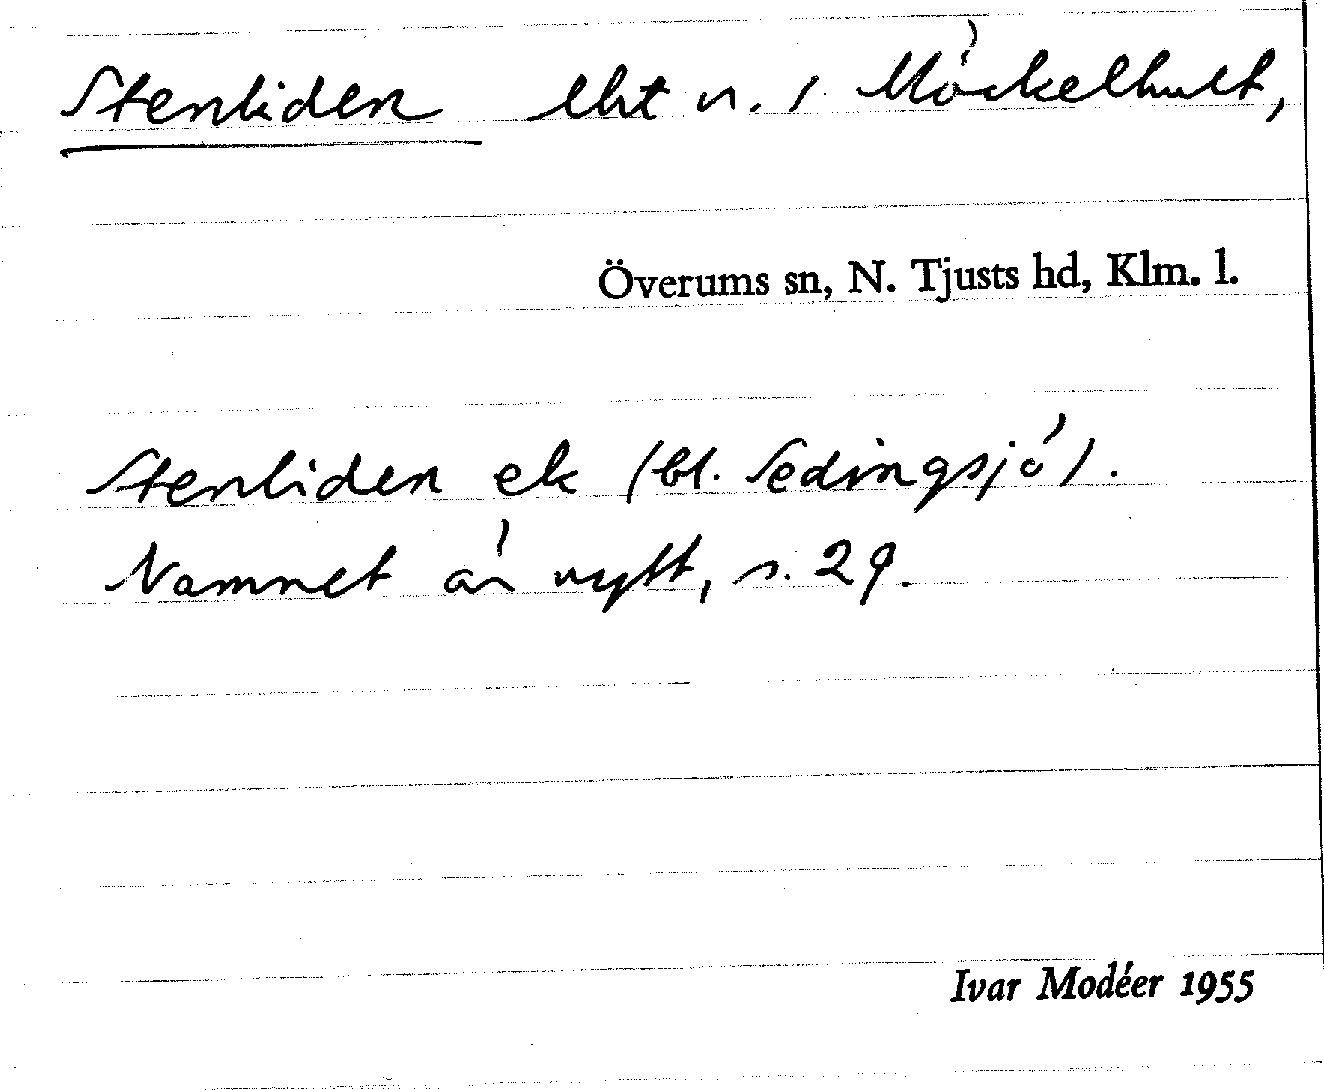 Stenliden lht n. / Möckelhult,
Överums sn, N. Tjusts hd, Klm. l.
Stenliden ek (bl. Sedingsjö).
Namnet är nytt, s. 29.
Ivar Modéer 1955